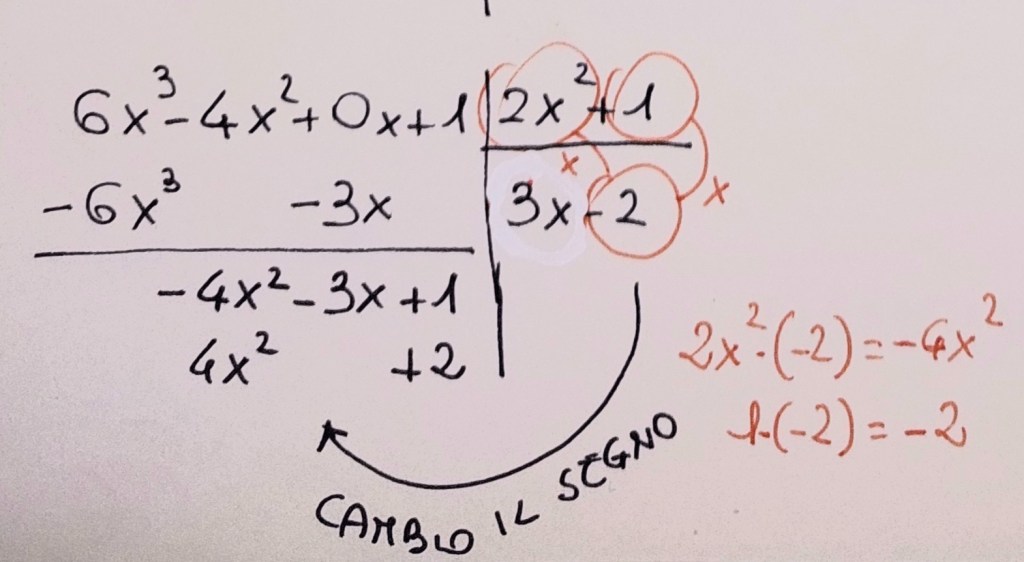 6x³-4x²+0x+1 | 2x²+1
-6x³ -3x | 3x-2
x x
-4x²-3x+1
4x² +2
2x²·(-2)=-4x²
1·(-2)=-2
CAMBIO IL SEGNO